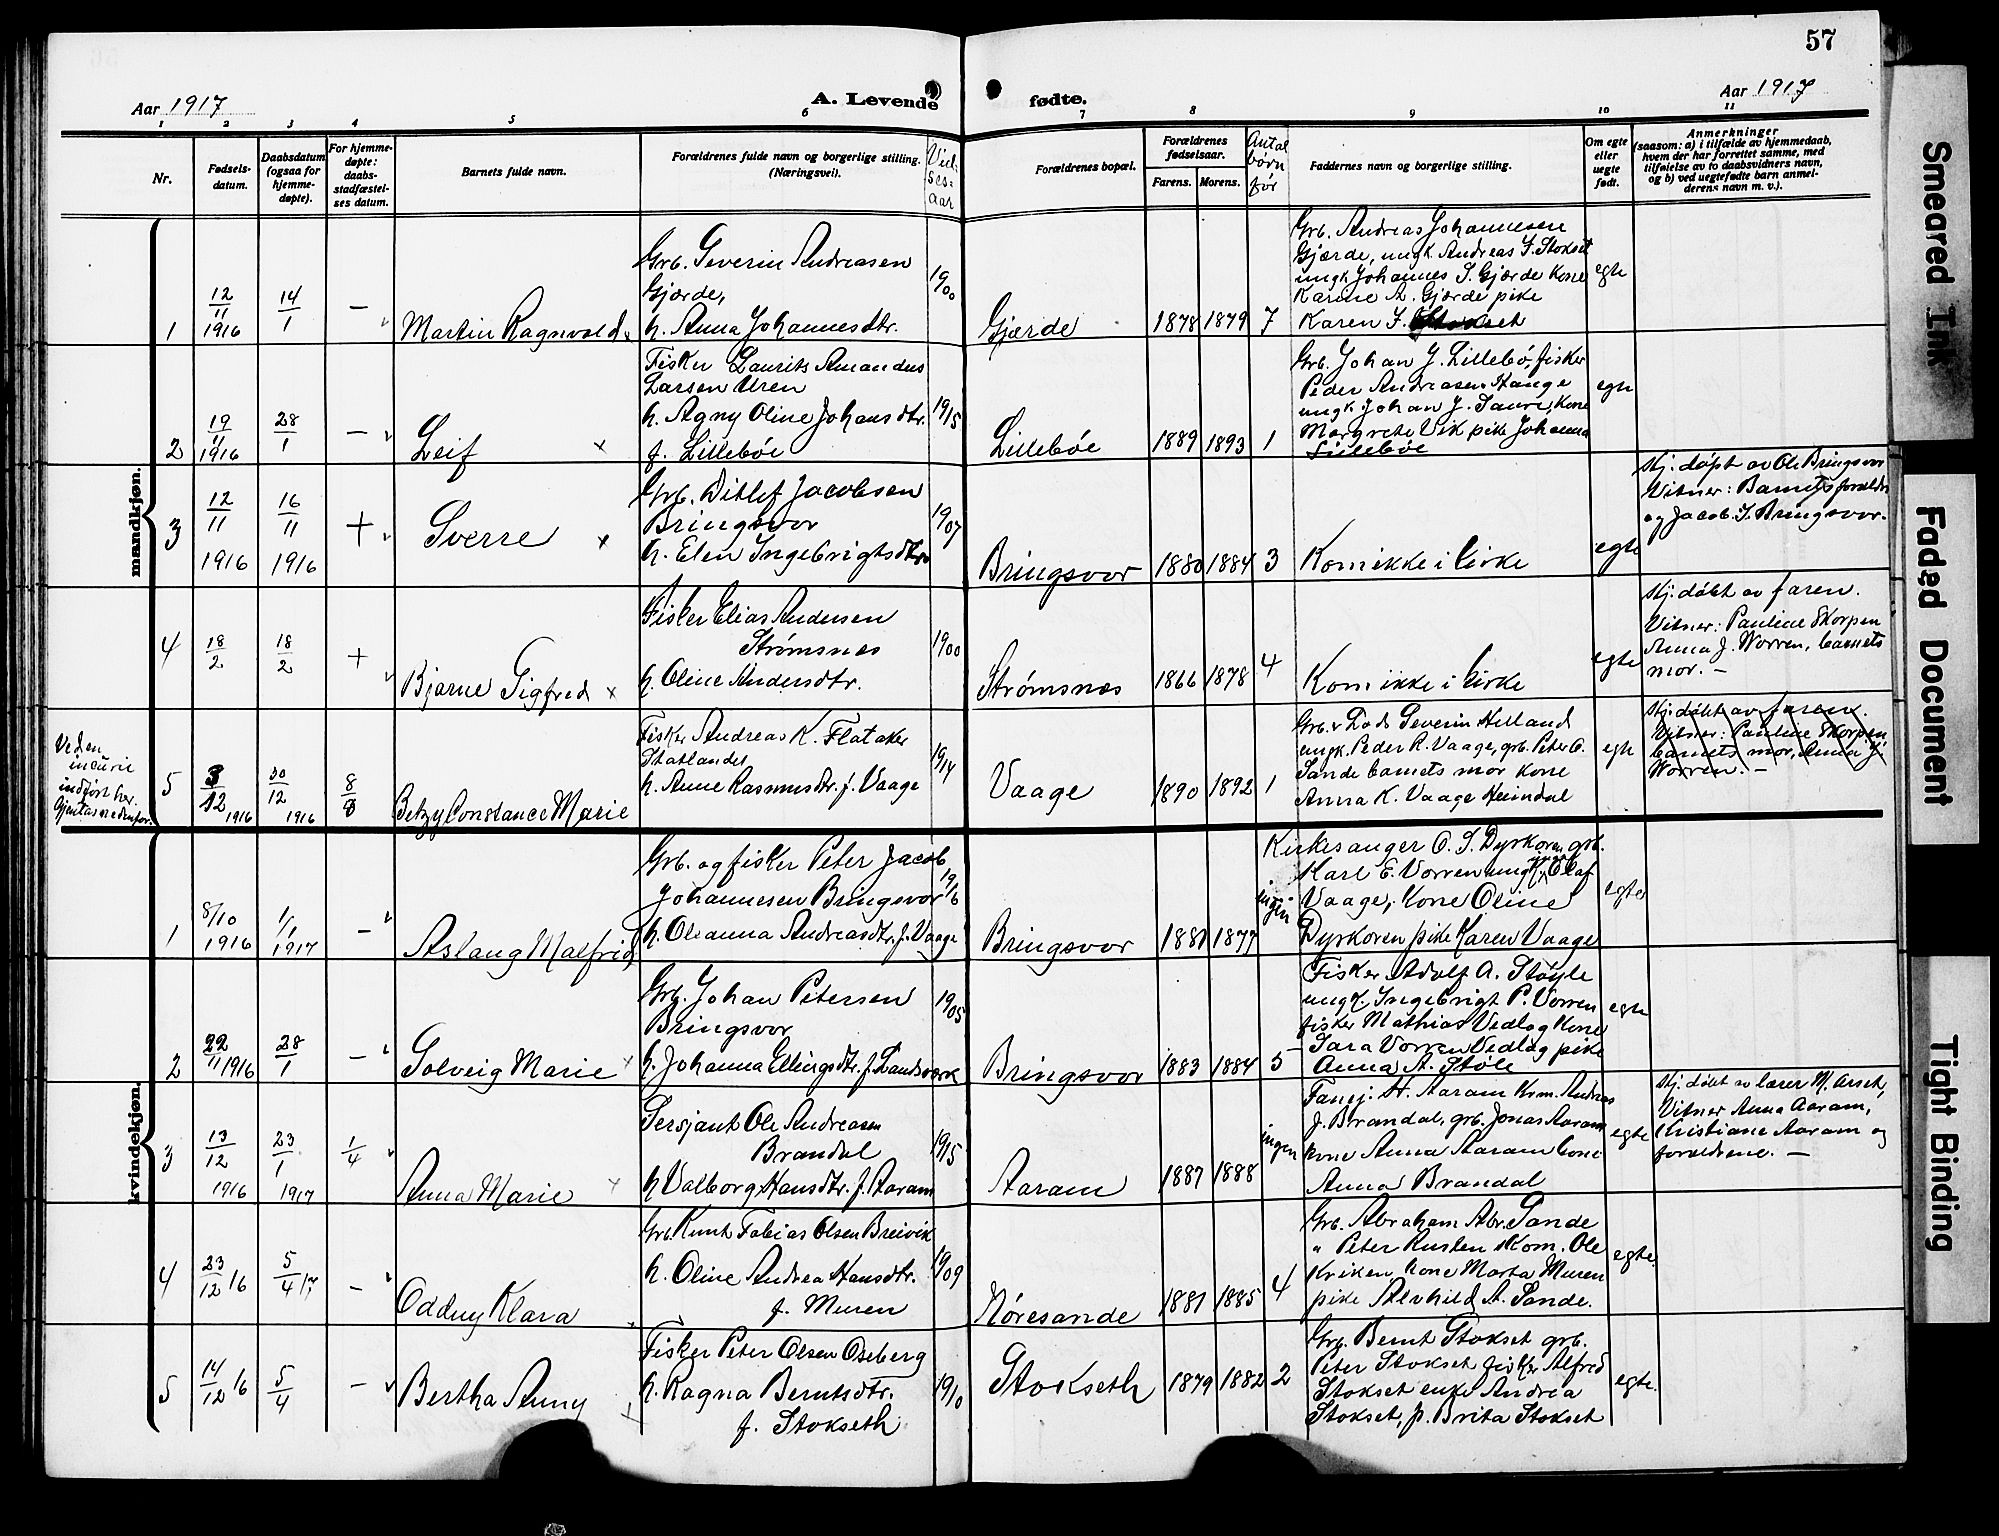 57
Aar 1917
A. Levende
fødte.
Aar 1917
1 2 3 4 5 6 7 8 9 10 11
Nr.
Fødsels-
datum.
Daabsdatum
(ogsaa for
hjemme-
døpte).
For hjemme-
døpte:
daabs-
stadfæstel-
ses datum.
Barnets fulde navn.
Forældrenes fulde navn og borgerlige stilling.
(Næringsvei).
Viel-
ses-
aar
Forældrenes bopæl.
Forældrenes
fødselsaar.
Farens. Morens.
Antal
børn
før
Faddernes navn og borgerlige stilling.
Om egte
eller
uegte
født.
Anmerkninger
(saasom: a) i tilfælde av hjemmedaab,
hvem der har forrettet samme, med
tilføielse av to daabsvidners navn,
og b) ved uegtefødte barn anmel-
derens navn m. v.).
mandkjøn.
1
12/11
1916
14/1
—
Martin Ragnvald
Grb. Severin Andreasen
Gjærde,
h. Anna Johannesdtr.
1900
Gjærde
1878 1879 7
Grb. Andreas Johannesen
Gjærde, ungk. Andreas J. Stokset
ungk Johannes S. Gjærde Kone
Karine A. Gjærde pike
Karen J. Stokset
egte
2
19/11
1916
28/1
—
Leif
Fisker Laurits Amandus
Larsen Uren
h. Agny Oline Johansdtr.
f. Lillebøe
1915
Lillebøe
1889 1893 1
Grb. Johan J. Lillebø, fisker
Peder Andreasen Hauge
ungk. Johan J. Saure, Kone
Margrete Vik pike Johanna
Lillebøe
egte
3
12/11
1916
16/11
1916
+
Sverre
Grb. Ditlef Jacobsen
Bringsvor
h. Elen Ingebrigtsdtr.
1907
Bringsvor
1880 1884 3
Kom ikke i kirke
egte
Hj. døpt av Ole Bringsvor
Vitner: Barnets forældre
og Jacob J. Bringsvor.
4
18/2
18/2
+
Bjarne Sigfred
Fisker Elias Andersen
Strømsnes
h. Oline Andersdtr.
1900
Strømsnes
1866 1878 4
Kom ikke i kirke
egte
Hj. døbt av faren.
Vitner: Pauline Skorpen
Anna J. Worren, barnets
mor. —
Ved en
incurie
indført her.
Gjentas nedenfor.
5
3/12
1916
30/12
1916
8/8
Betzy Constance Marie
Fisker Andreas K. Flataker
Statlandet
h. Anne Rasmusdtr. f. Vaage
1914
Vaage
1890 1892 1
Severin Helland
ungk. Peder R. Vaage, grb. Peter O.
Sande barnets mor Kone
Anna K. Vaage Heindal
egte
Hj. døbt av faren.
Vitner: Pauline Skorpen
barnets mor, Anna J.
Worren. —
kvindekjøn.
1
8/10
1916
1/1
1917
—
Aslaug Malfrid
Grb. og fisker Peter Jacob
Johannesen Bringsvor
h. Oleanna Andreasdtr. f. Vaage
1916
Bringsvor
1881 1877
ingen
Kirkesanger O. S. Dyrkoren, grb.
Karl E. Vorren ungk. Olaf
Vaage, Kone Oline
Dyrkoren pike Karen Vaage
egte
2
22/11 1916
28/1
—
Solveig Marie
Grb. Johan Petersen
Bringsvor
h. Johanna Ellingsdtr. f. Landsverk
1905
Bringsvor
1883 1884 5
Fisker Adolf A. Støyle
ungk. Ingebrigt P. Vorren
fisker Mathias Vedlog Kone
Sara Vorren Vedlog pike
Anna A. Støle
egte
3
13/12
1916
23/1
1917
1/4
Anna Marie
Sersjant Ole Andreasen
Brandal
h Valborg Hansdtr. f. Aaram
1915
Aaram
1887 1888
ingen
Fanej. H. Aaram Krm. Andreas
J. Brandal, grb. Jonas Aaram
kone Anna Aaram kone
Anna Brandal
egte
Hj. døbt av lærer M. Aset,
Vitner Anna Aaram,
Kristiane Aaram og
forældrene. —
4
23/12 16
5/4 17
—
Oddny Klara
Grb Knut Fabias Olsen Breivik
h. Oline Andrea Hansdtr.
f. Muren
1909
Nøresande
1881 1885 4
Grb. Abraham Abr. Sande
" Peter Rusten Kom. Ole
Kriken kone Marta Muren
pike Alvhild A. Sande.
egte.
5
14/12 16
5/4
—
Bertha Anny
Fisker Peter Olsen Oseberg
h. Ragna Berntsdtr.
f. Stokseth
1910
Stokseth
1879 1882 2
Grb. Bernt Stokset grb.
Peter Stokset fisker Alfred
Stokset enke Andrea
Stokset, p. Brita Stokset
egte.
Smeared Ink
Faded Document
Tight Binding